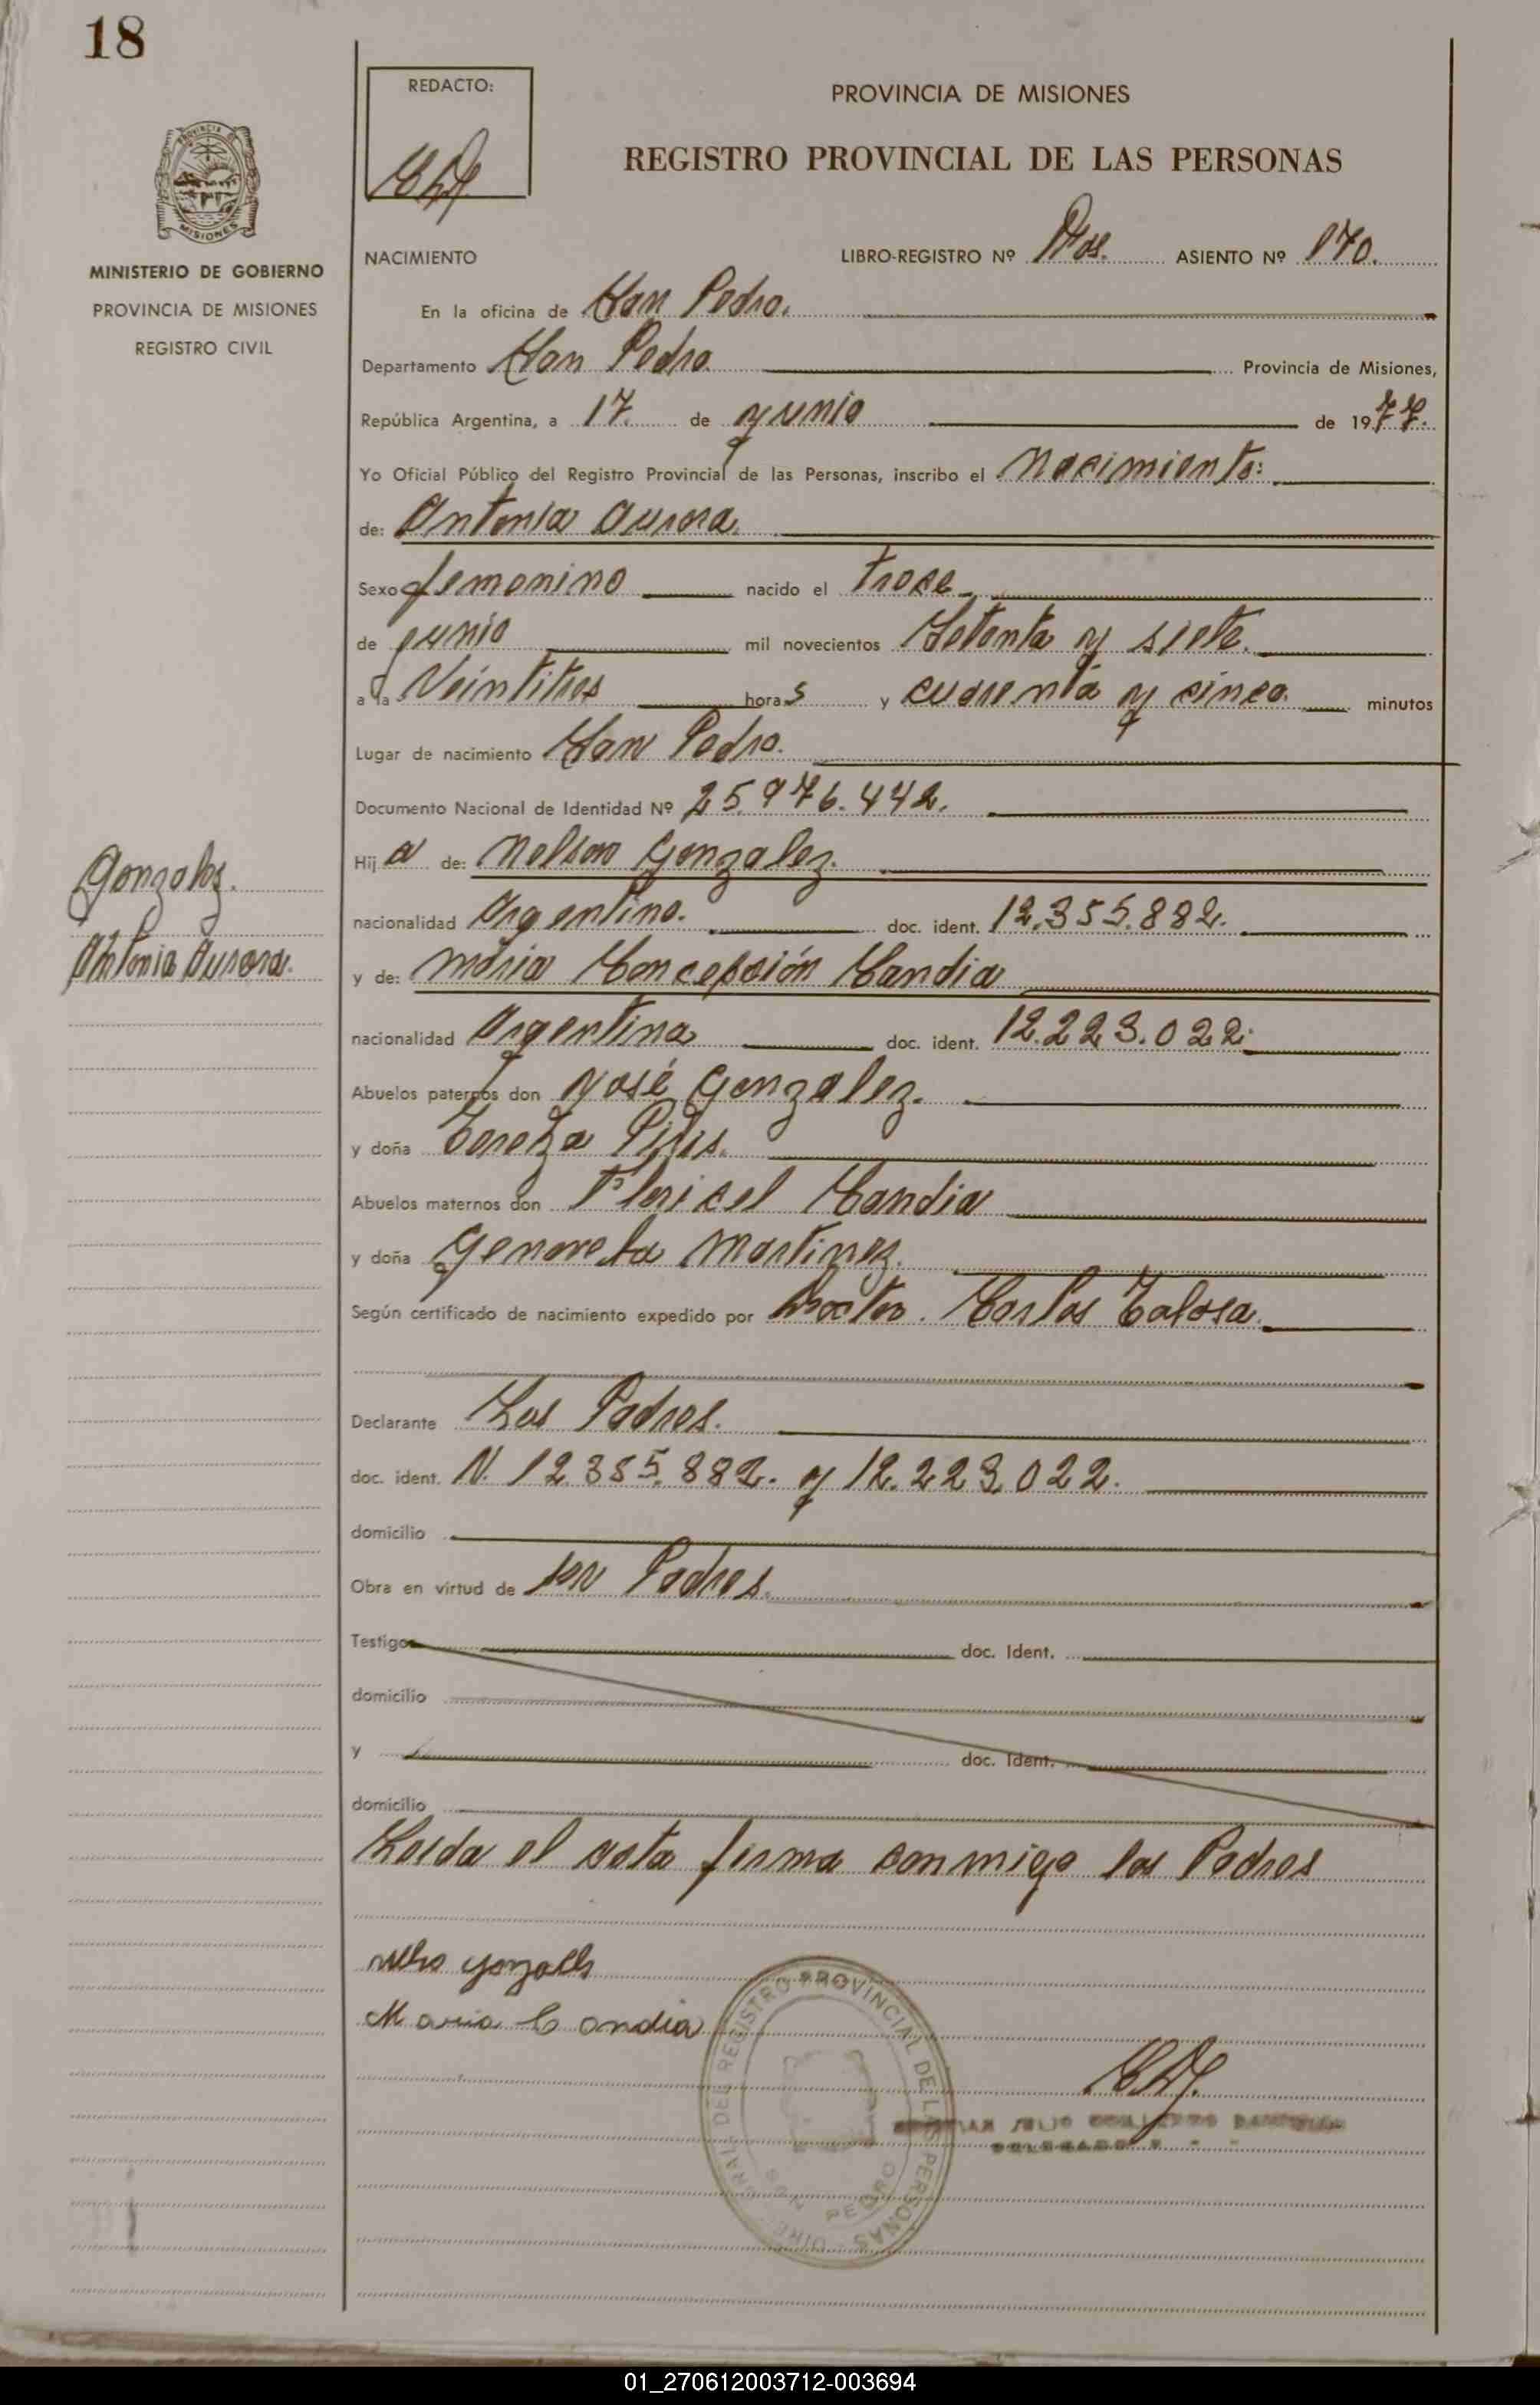 18
REDACTO:
PROVINCIA DE MISIONES
REGISTRO PROVINCIAL DE LAS PERSONAS
MISIONES
MINISTERIO DE GOBIERNO
PROVINCIA DE MISIONES
REGISTRO CIVIL
NACIMIENTO LIBRO-REGISTRO Nº Dos. ASIENTO Nº 170.
En la oficina de San Pedro.
Departamento San Pedro Provincia de Misiones,
República Argentina, a 17. de Junio de 1977.
Yo Oficial Público del Registro Provincial de las Personas, inscribo el Nacimiento:
de: Antonia Aurora.
Sexo femenino nacido el Trece
de junio mil novecientos Setenta y siete.
a la Veintitres horas y cuarenta y cinco. minutos
Lugar de nacimiento San Pedro.
Documento Nacional de Identidad Nº 25.976.442.
Hija de: Nelson Gonzalez.
nacionalidad Argentino. doc. ident. 12.355.882.
Gonzalez.
Antonia Aurora.
y de: Maria Concepsión Candia
nacionalidad Argentina doc. ident. 12.223.022.
Abuelos paternos don José Gonzalez.
y doña Tereza
Abuelos maternos don Candia
y doña Martinez.
Según certificado de nacimiento expedido por Doctor. Carlos Tolosa.
Declarante Los Padres.
doc. ident. N. 12.355.882. y 12.223.022.
domicilio
Obra en virtud de ser Padres.
Testigos doc. Ident.
domicilio
y doc. Ident.
domicilio
Leida el acta firma conmigo los Padres
Maria C andia
DEL REGISTRO PROVINCIAL DE LAS PERSONAS
SAN PEDRO
01_270612003712-003694